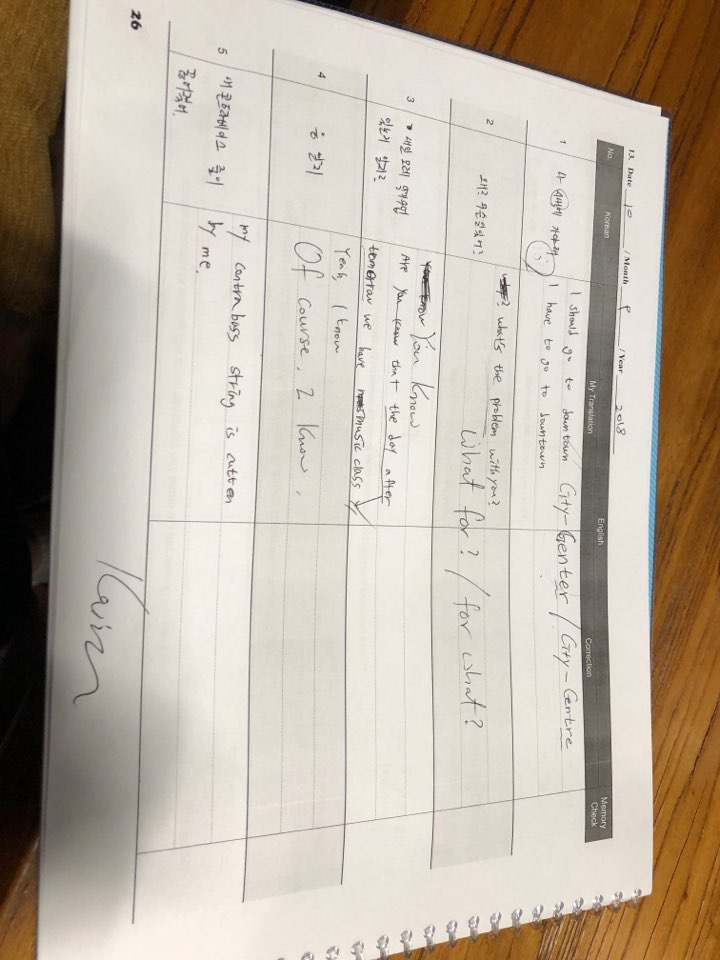 13. Date 10 / Month 9 / Year 2018
No. Korean My Translation English Correction Memory Check
1 나 시내에 가야돼
I should go to downtown
I have to go to downtown
City-Center / City-Centre
2 왜? 무슨일있니?
what's the problem with you?
What for? / for what?
3 너 내일 모레 음악수업
있는거 알지?
You know
Are you know that the day after
tomorrow we have music class
4 응 알지
Yeah, I know
Of course, I know,
5 내 콘트라베이스 줄이
끊어졌어.
my contrabass string is cutten
by me.
26